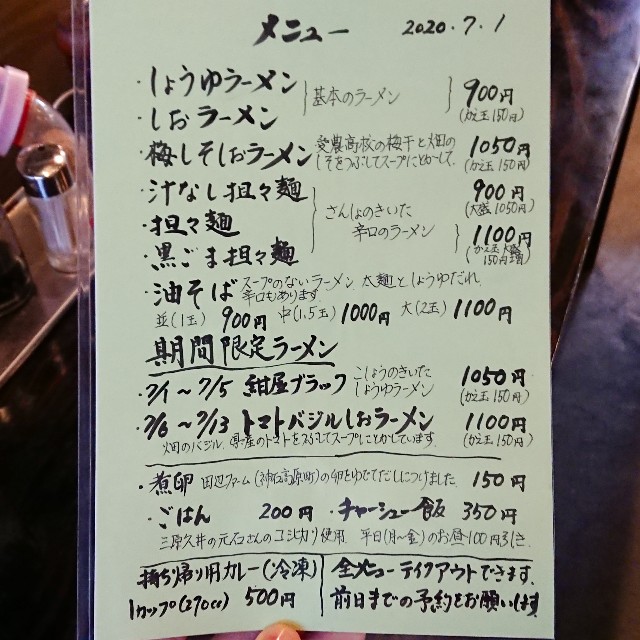 メニュー 2020.7.1
・しょうゆラーメン
・しおラーメン
基本のラーメン 900円
(かえ玉150円)
・梅しそしおラーメン 愛農高校の梅干と畑の
しそをつぶしてスープにとかして、 1050円
(かえ玉150円)
・汁なし担々麺 900円
(大盛1050円)
・担々麺
・黒ごま担々麺
さんしょのきいた
辛口のラーメン
1100円
(かえ玉 大盛
150円増)
・油そば スープのないラーメン 太麺としょうゆだれ
辛口もあります
並(1玉) 900円 中(1.5玉) 1000円 大(2玉) 1100円
期間限定ラーメン
・7/1〜7/5 紺屋ブラック こしょうのきいた
しょうゆラーメン 1050円
(かえ玉150円)
・7/6〜7/13 トマトバジルしおラーメン 1100円
(かえ玉150円)
畑のバジル、県産のトマトをつぶしてスープにとかしています
・煮卵 田辺ファーム(神石高原町)の卵をゆでてだしにつけました。 150円
・ごはん 200円 ・チャーシュー飯 350円
三原久井の元石さんのコシヒカリ使用 平日(月〜金)のお昼100円引き。
持ち帰り用カレー(冷凍)
1カップ(270cc) 500円
全メニューテイクアウトできます。
前日までの予約をお願いします